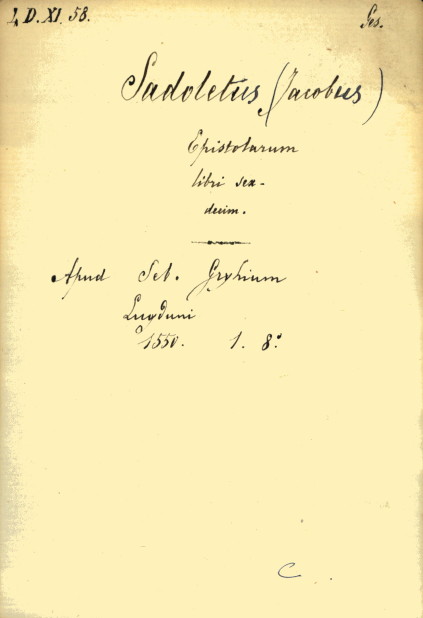 I, D. XI. 58.
Ges.
Sadoletus (Jacobus)
Epistolarum
libri sex-
decim.
Apud Seb. Gryhium
Lugduni
1550. 1. 8º
C